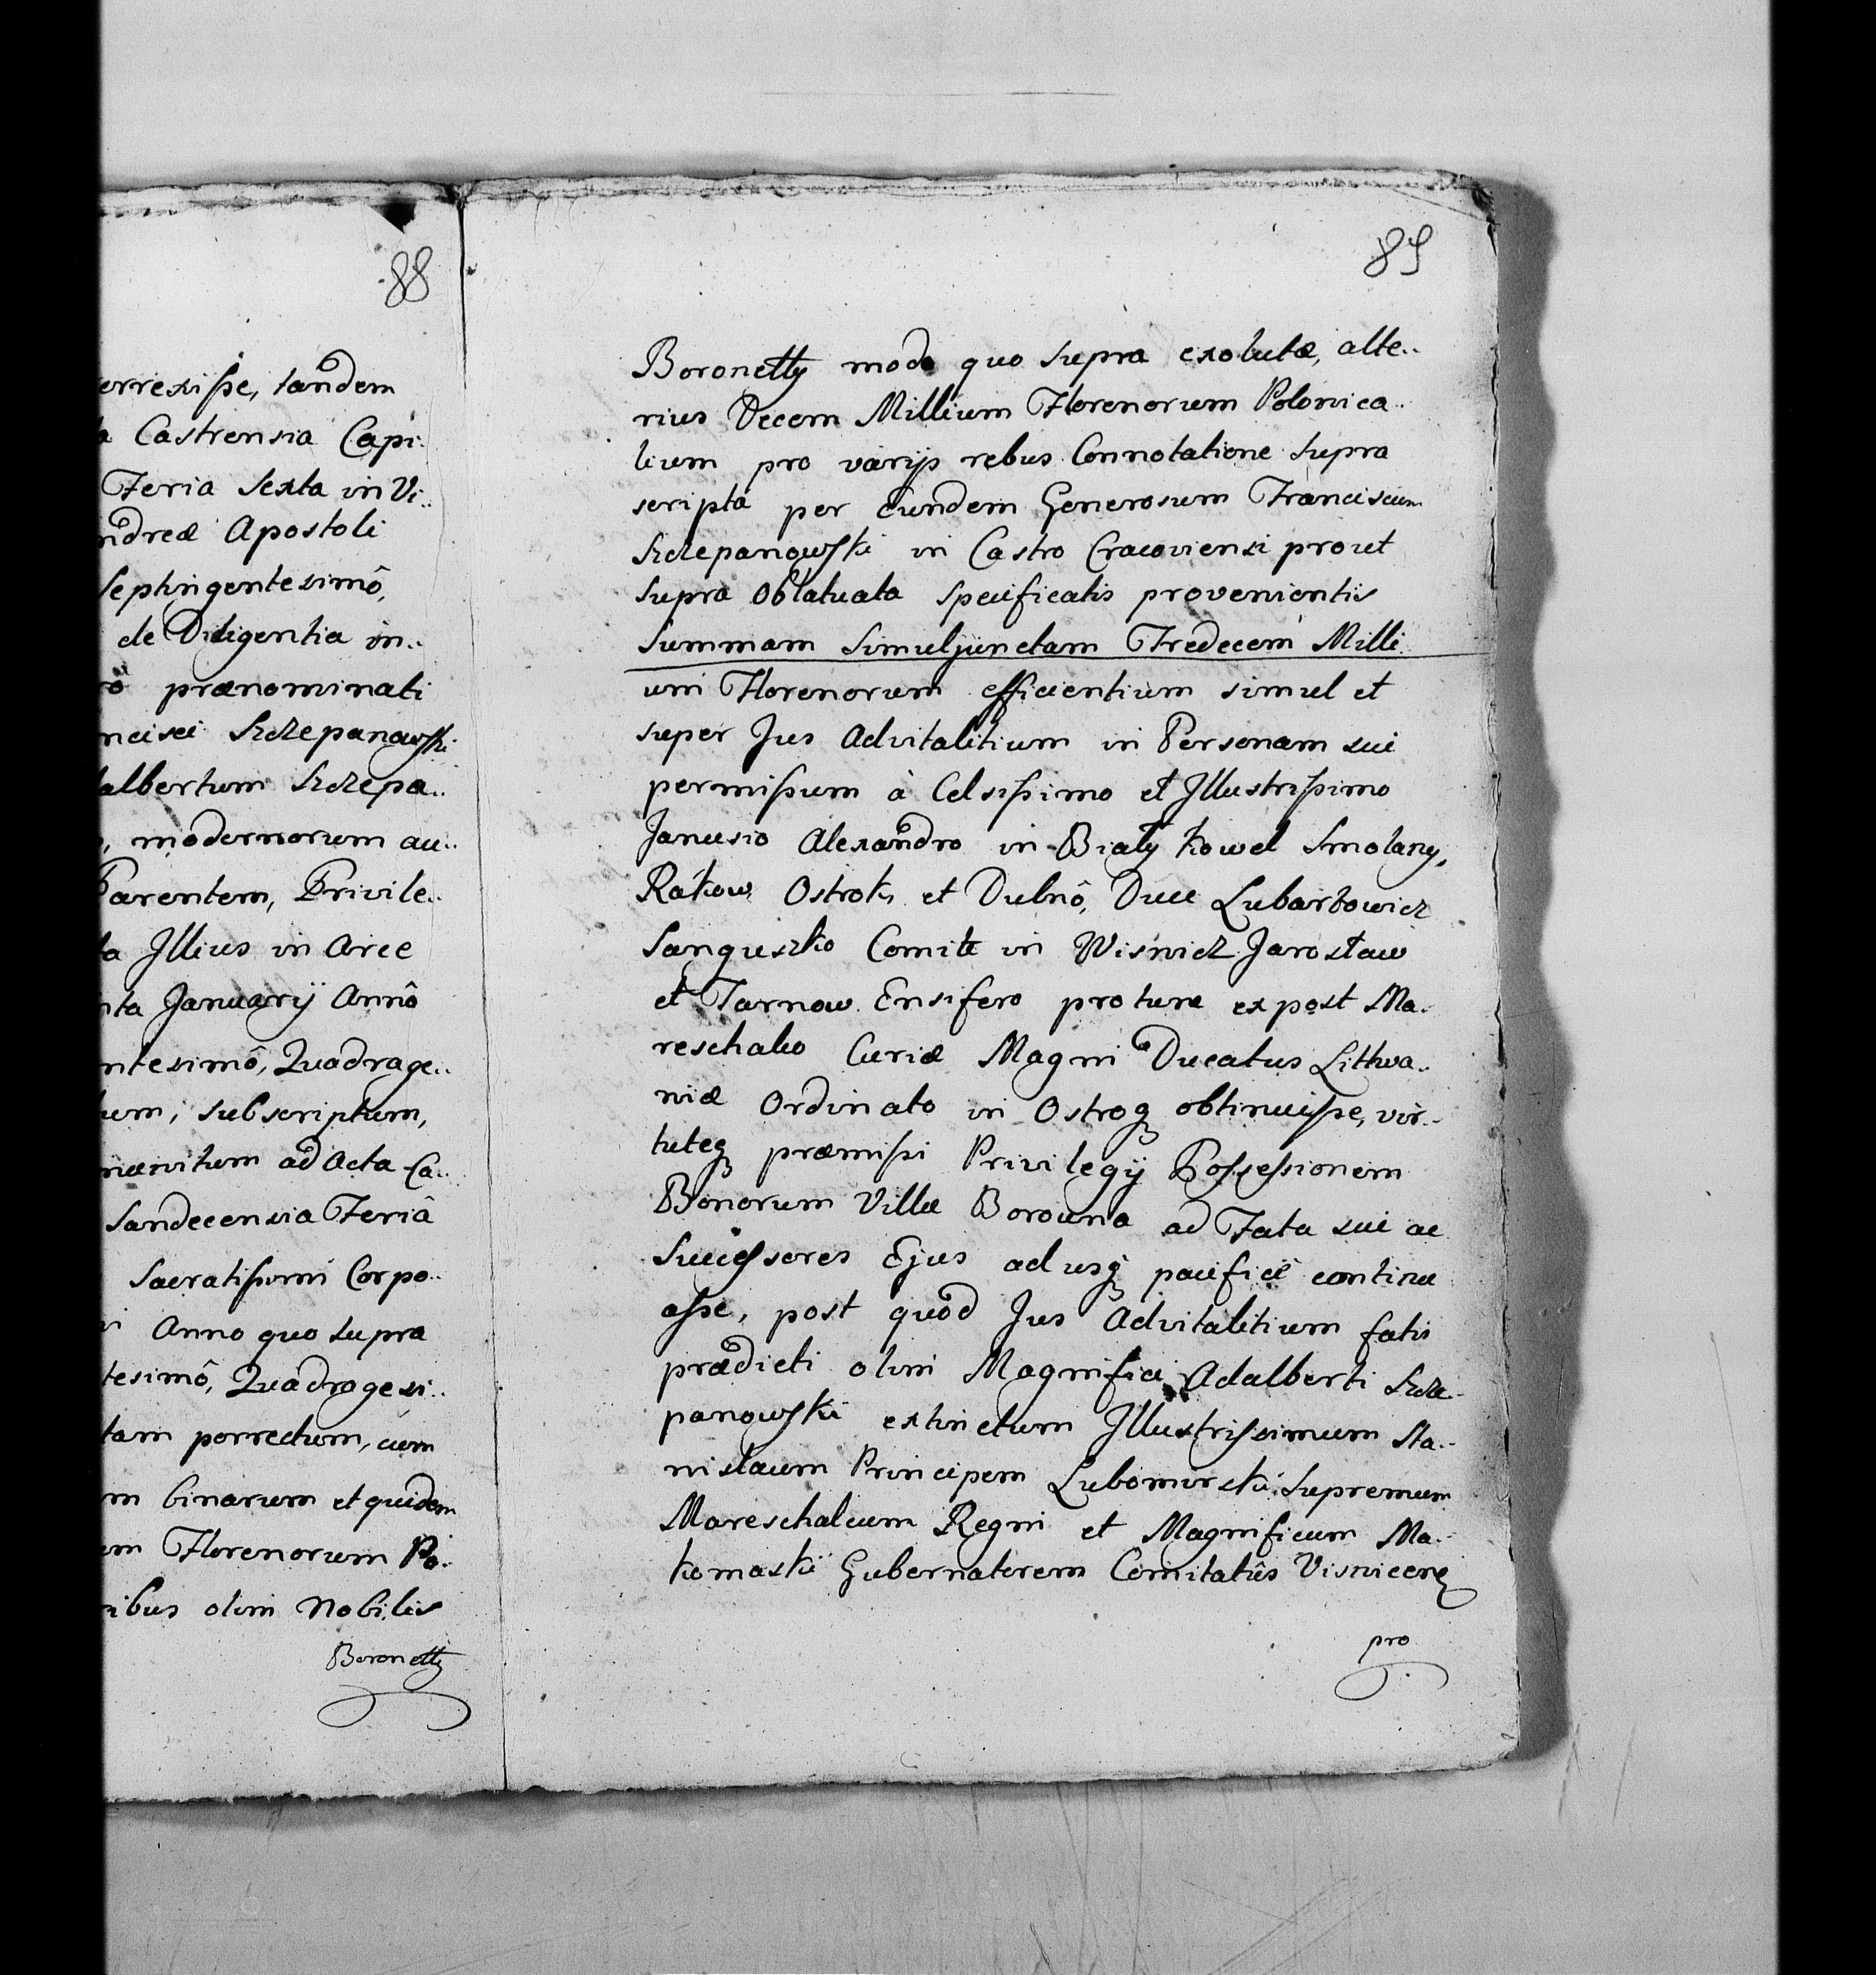 88
errexiſse, tandem
a Castrensia Capi..
Feria Sexta in Vi..
ndreæ Apostoli
Septingentesimô,
de Diligentia in..
rô prænominati
ncisci Szczepanowſki
dalbertum Szczepa..
, modernorum au..
Parentem, Privile..
ta Jllius in Arce
nta Januarij Annô
ntesimô, Quadrage..
tum, subscriptum,
ad Acta Ca..
Sandecensia Feriâ
Sacratiſsimi Corpo..
Anno quo supra
tesimô, Quadragesi..
tam porrectum, cum
m binarum et quidem
um Florenorum Po..
ribus olim Nobilis
Boronetty
89
Boronetty modo quo supra exolutæ, alte..
rius Decem Millium Florenorum Polonica..
lium pro varijs rebus Connotatione supra
scriptâ per Eundem Generosum Franciscum
Szczepanowſki in Castro Cracoviensi prout
supra Oblatuata specificatis provenientis
Summam Simuljunctam Tredecem Milli
um Florenorum efficientium simul et
super Jus Advitalitium in Personam sui
permiſsum à Celsiſsimo et Jllustriſsimo
Janusio Alexandro in Biały Kowel Smolany,
Rakow Ostrok et Dubnô, Duce Lubartowicz
Sanguszko Comite in Wisnicz Jarosław
et Tarnow Ensifero protunc expost Ma..
reschalco Curiæ Magni Ducatus Lithva..
niæ Ordinato in Ostrog obtinuiſse, vir..
tuteq præmiſsi Privilegij Poſseſsionem
Bonorum Villæ Borowna ad Fata sui ac
Succeſsores Ejus adusq pacificè continu
aſse, post quod Jus Advitalitium fatis
prædicti olim Magnifici Adalberti Szcze..
panowſki extinctum Jllustriſsimum Sta..
nisłaum Principem Lubomirski Supremum
Mareschalcum Regni et Magnificum Ma..
komaski Gubernatorem Comitatûs Visnicen
pro